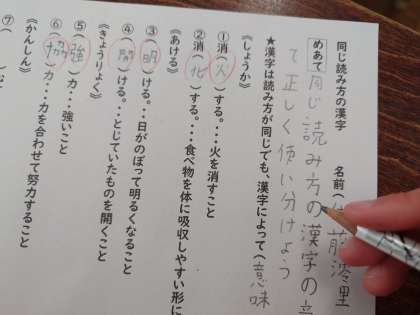 同じ読み方の漢字 名前(
めあて 同じ読み方の漢字の
て正しく使い分けよう
★漢字は読み方が同じでも、漢字によって(意味
《しょうか》
①消(火)する。・・・火を消すこと
②消(化)する。・・・食べ物を体に吸収しやすい形に
《あける》
③(明)ける。・・・日がのぼって明るくなること
④(開)ける。・・・とじていたものを開くこと
《きょうりょく》
⑤(強)力・・・強いこと
⑥(協)力・・・力を合わせて努力すること
《かんしん》
⑦(